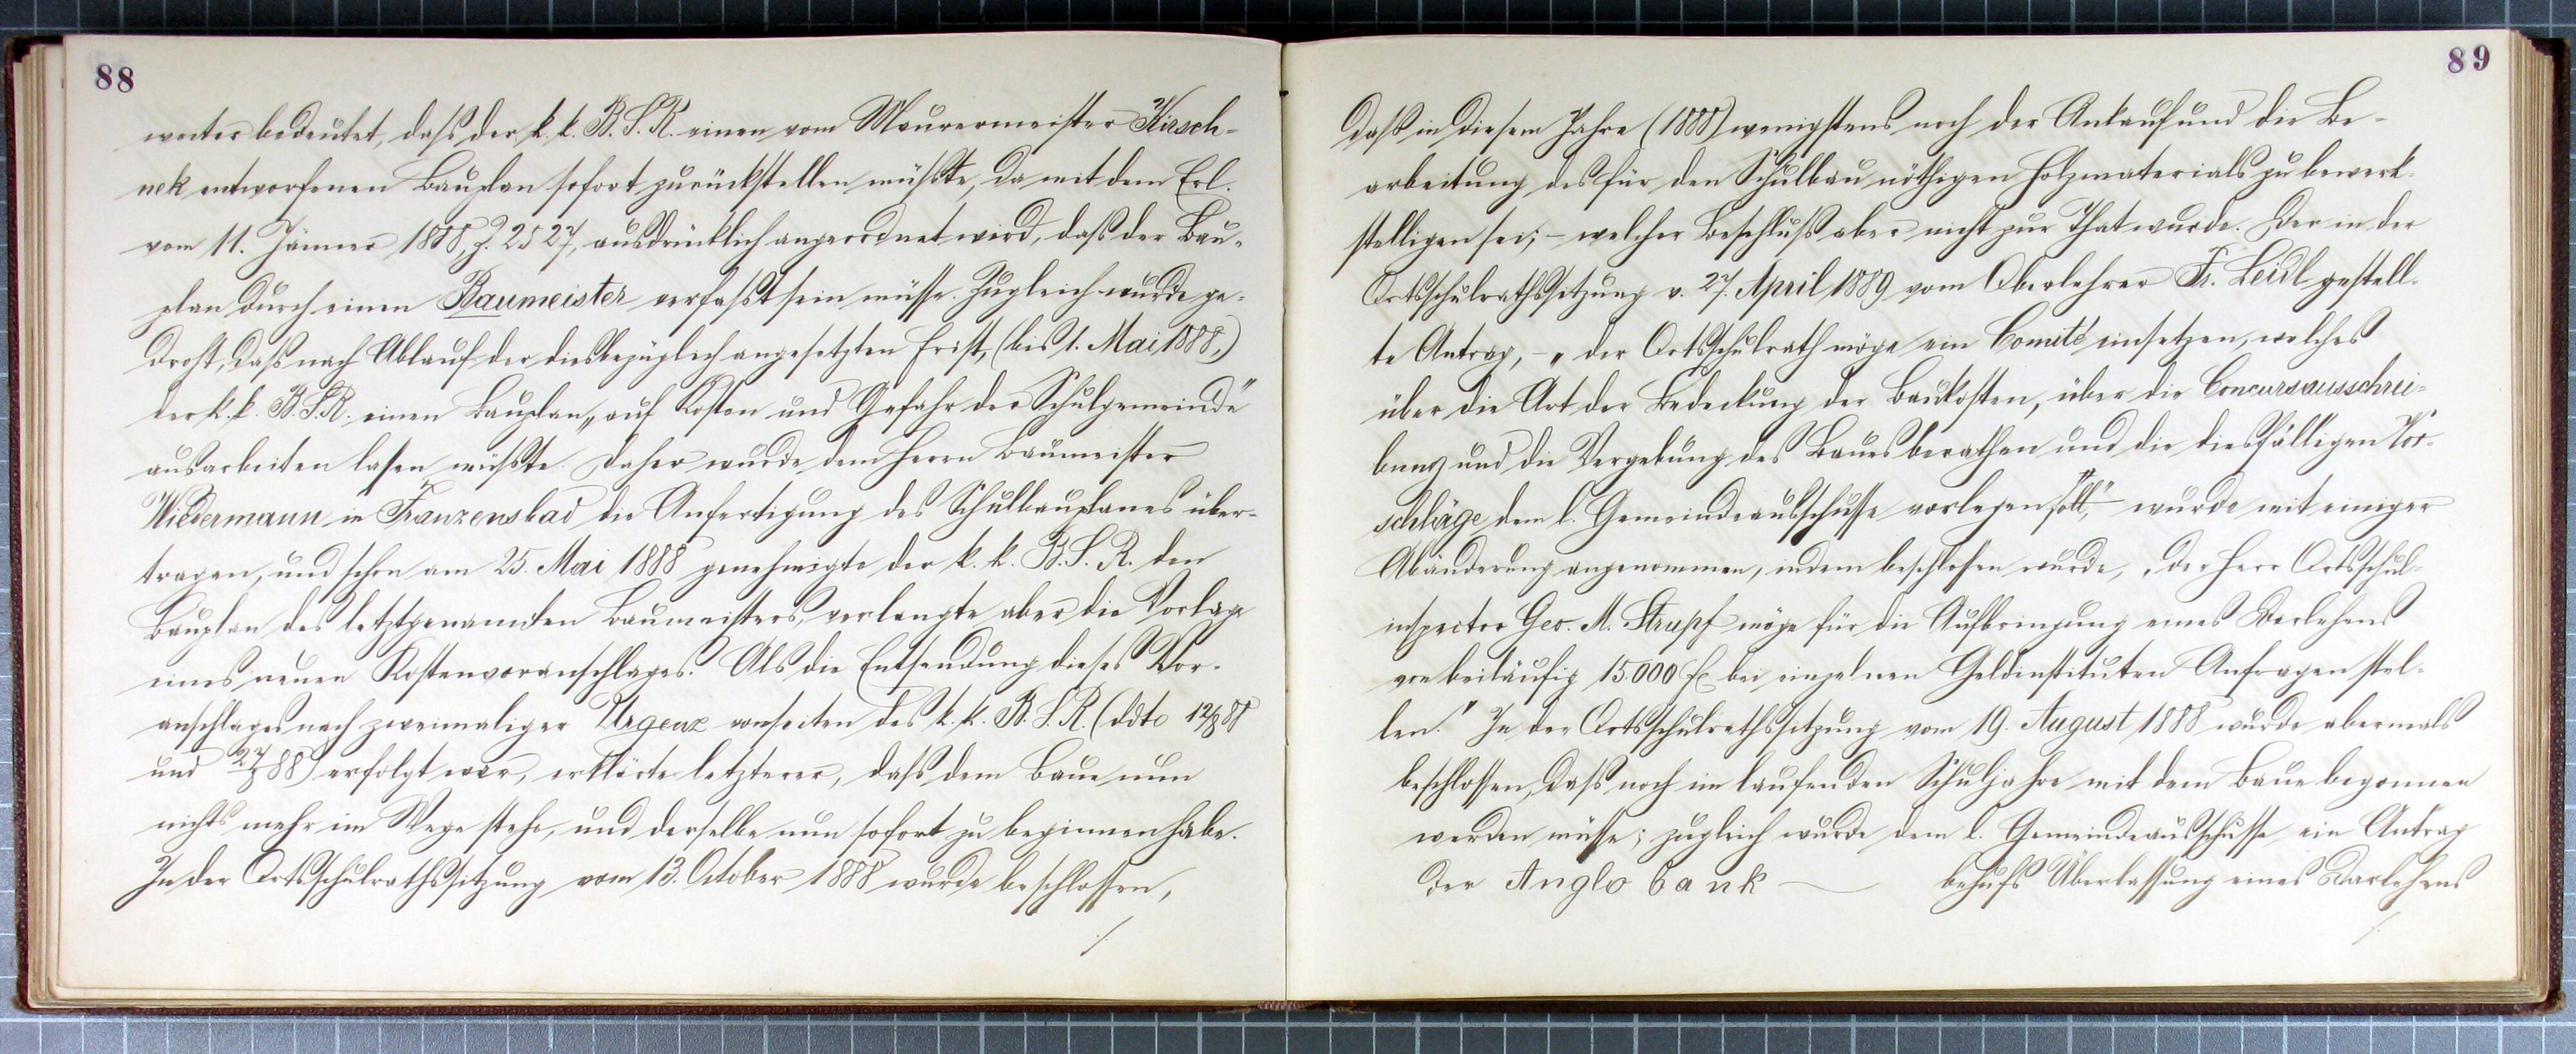 88
weiter bedeutet, daß der k. k. B. S. R. einen vom Maurermeister Kirsch-
nek entworfenen Bauplan sofort zurückstellen müßte, da mit dem Erl.
vom 11. Jänner 1888, Z. 2527, ausdrücklich angeordnet wird, daß der Bau-
plan durch einen Baumeister verfaßt sein müsse. Zugleich wurde ge-
droht, daß nach Ablauf der diesbezüglich angesetzten Frist, (bis 1. Mai 1888,)
der k. k. B. S. R. einen Bauplan „auf Kosten und Gefahr der Schulgemeinde“
ausarbeiten lassen müßte. Daher wurde dem Herrn Baumeister
Wiedermann in Franzensbad die Anfertigung des Schulbauplanes über-
tragen, und schon am 25. Mai 1888 genehmigte der k. k. B. S. R. den
Bauplan des letztgenannten Baumeisters, verlangte aber die Vorlage
eines neuen Kostenvoranschlages. Als die Entsendung dieses Vor-
anschlages nach zweimaliger Urgenz vonseiten des k. k. B. S. R. (ddto
und erfolgt war, erklärte letzterer, daß dem Baue nun
nichts mehr im Wege stehe, und derselbe nun sofort zu beginnen habe.
In der Ortsschulrathssitzung vom 13. October 1888 wurde beschlossen,
./.
89
daß in diesem Jahre (1888) wenigstens noch der Ankauf und die Be-
arbeitung des für den Schulbau nöthigen Holzmaterials zu bewerk-
stelligen sei; – welcher Beschluß aber nicht zur That wurde. Der in der
Ortsschulrathssitzung v. 27. April 1889 vom Oberlehrer Fr. Leidl gestell-
te Antrag, – „der Ortsschulrath möge ein Comité einsetzen, welches
über die Art der Bedeckung der Baukosten, über die Concursausschrei-
bung und die Vergebung des Baues berathen und die diesfälligen Vor-
schläge dem l. Gemeindeausschusse vorlegen soll,“ – wurde mit einiger
Abänderung angenommen, indem beschlossen wurde, „der Herr Ortsschul-
inspector Geo. M. Strupf möge für die Aufbringung eines Darlehens
von beiläufig 15.000 fl bei einzelnen Geldinstituten Anfragen stel-
len.“ In der Ortsschulrathssitzung vom 19. August 1888 wurde abermals
beschlossen, daß noch im laufenden Schuljahre mit dem Baue begonnen
werden müsse; zugleich wurde dem l. Gemeindeausschusse ein Antrag
der Anglobank — behufs Überlassung eines Darlehens
./.